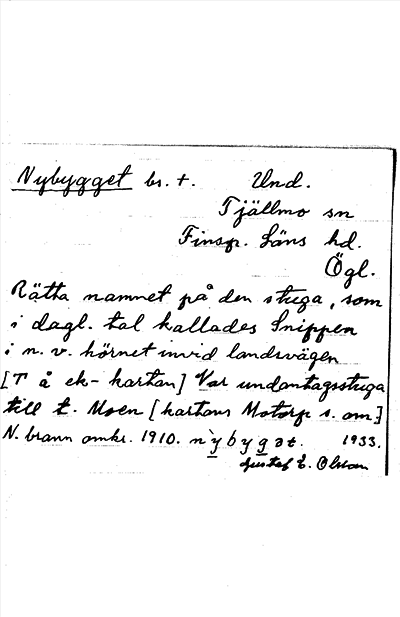 Nybygget br. t. Und.
Tjällmo sn
Finsp. Läns hd.
Ögl.
Rätta namnet på den stuga, som
i dagl. tal kallades Snippen
i n. v. hörnet invid landsvägen
[T å ek-kartan] Var undantagsstuga
till t. Moen [kartans Motorp s. om.]
N. brann omkr. 1910. nỳbygət. 1933.
Gustaf E. Olsson